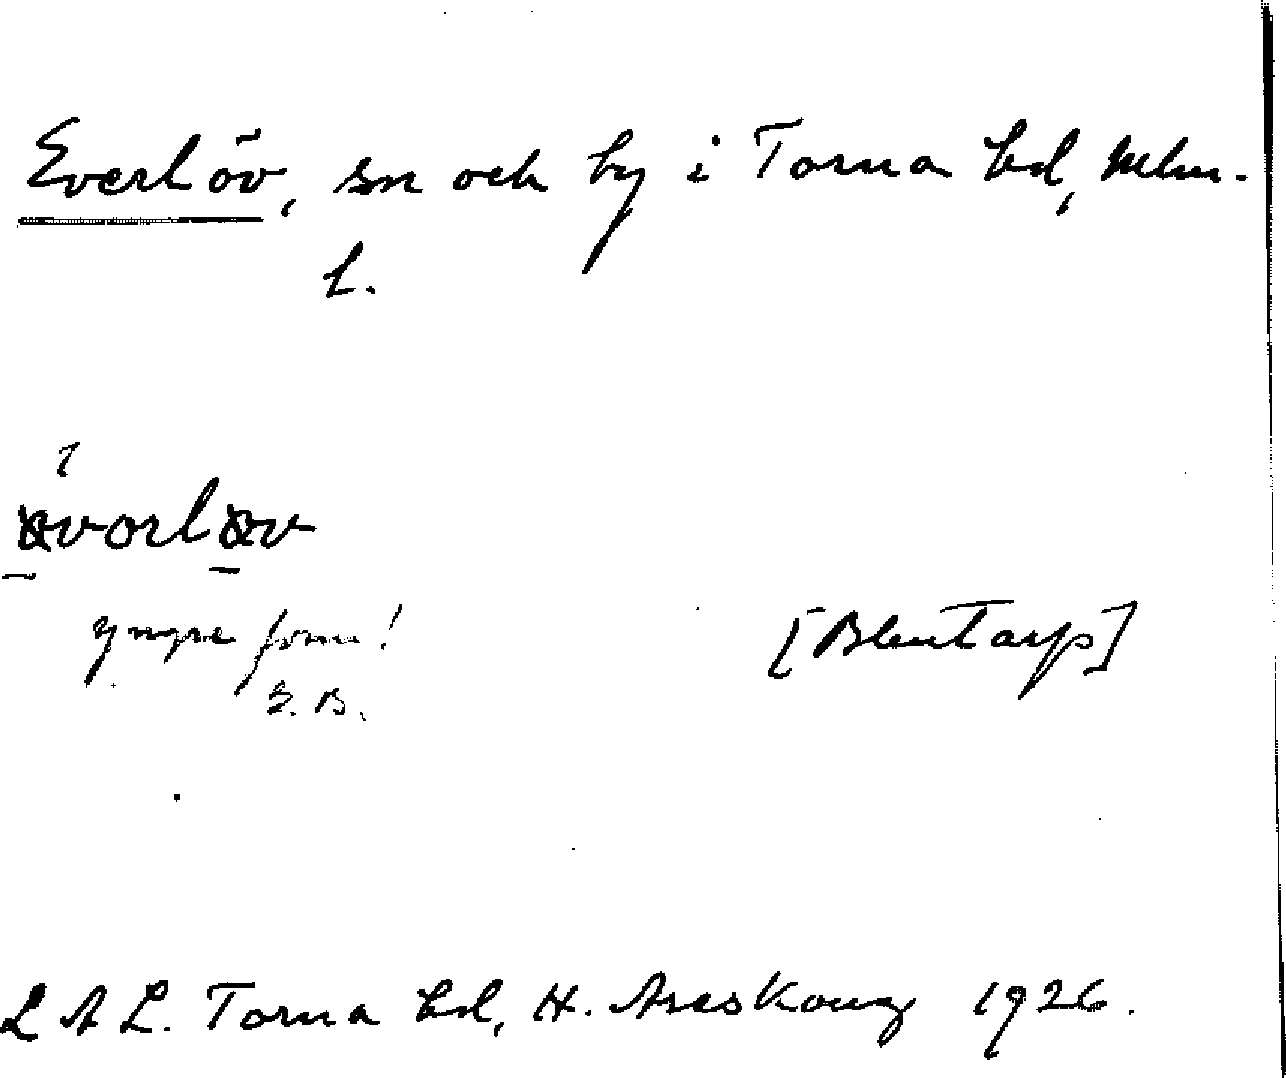 Everlöv, sn och by i Torna hd, Mlm.
l.
yngre form!
[Blentarp]
L A L. Torna hd, H. Areskoug 1926.